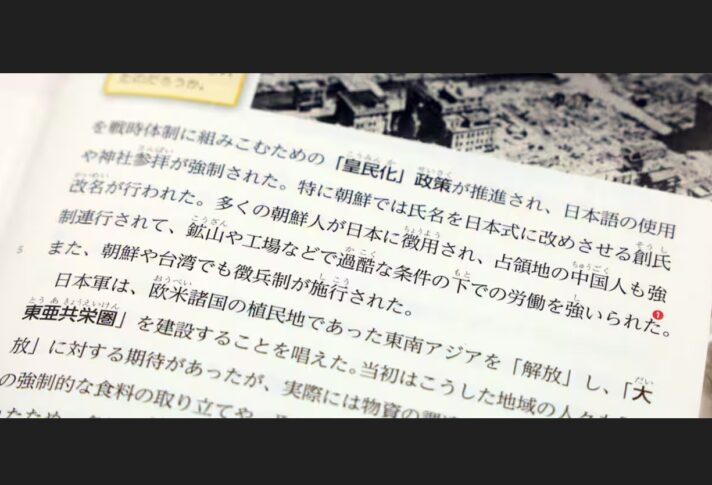 たのだろうか。
を戦時体制に組みこむための「皇民化」政策が推進され、日本語の使用
や神社参拝が強制された。特に朝鮮では氏名を日本式に改めさせる創氏
改名が行われた。多くの朝鮮人が日本に徴用され、占領地の中国人も強
制連行されて、鉱山や工場などで過酷な条件の下での労働を強いられた。
5 また、朝鮮や台湾でも徴兵制が施行された。
日本軍は、欧米諸国の植民地であった東南アジアを「解放」し、「大
東亜共栄圏」を建設することを唱えた。当初はこうした地域の人々も
放」に対する期待があったが、実際には物資の調
の強制的な食料の取り立てや、